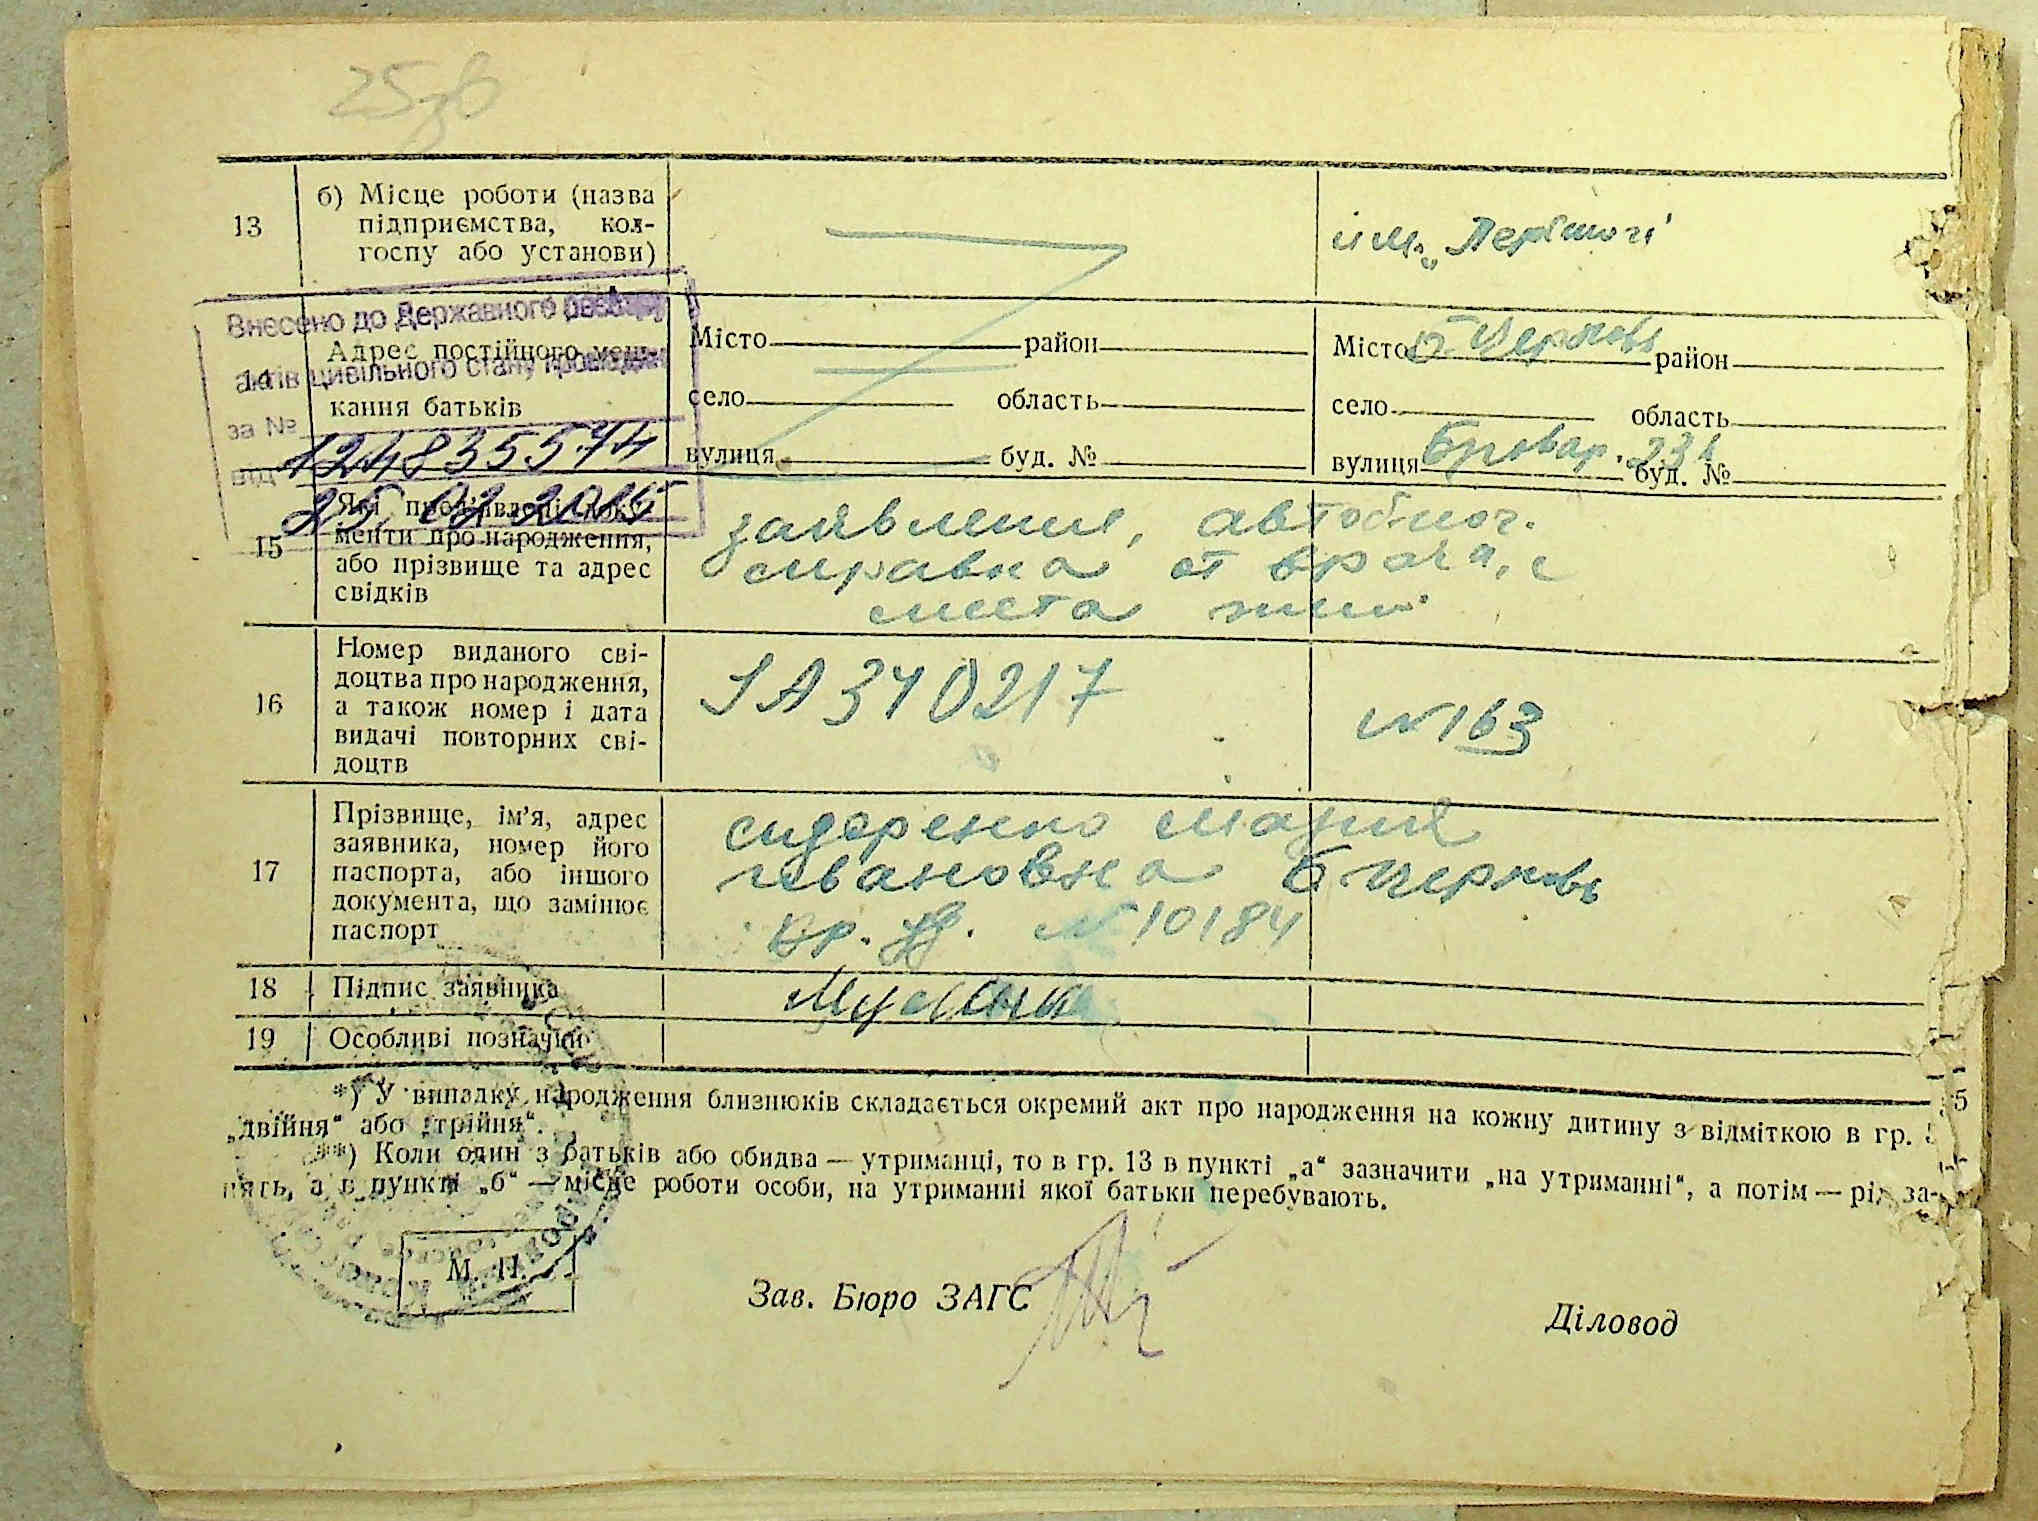 25зв
13
б) Місце роботи (назва
підприємства, кол-
госпу або установи)
им. „
Внесено до Державного реєстру
актів цивільного стану громадян
за № 124835574
від 25.02.2015
14
Адрес постійного меш-
кання батьків
Місто район
село область
вулиця буд. №
Місто Б-Церковь район
село область
вулиця Бровар. 231 буд. №
15
Які пред'явлені доку-
менти про народження,
або прізвище та адрес
свідків
заявление, автобиог.
справка от врача, с
места жит.
16
Номер виданого сві-
доцтва про народження,
а також номер і дата
видачі повторних сві-
доцтв
ІА 340217
N 163
17
Прізвище, ім'я, адрес
заявника, номер його
паспорта, або іншого
документа, що замінює
паспорт
Сидоренко Мария
Ивановна Б. Церковь
N 10184
18
Підпис заявника
19
Особливі позначки
*) У випадку народження близнюків складається окремий акт про народження на кожну дитину з відміткою в гр. 5
„двійня“ або „трійня“.
**) Коли один з батьків або обидва — утриманці, то в гр. 13 в пункті „а“ зазначити „на утриманні“, а потім — рід за-
нять, а в пункті „б“ — місце роботи особи, на утриманні якої батьки перебувають.
М. П.
Зав. Бюро ЗАГС
Діловод